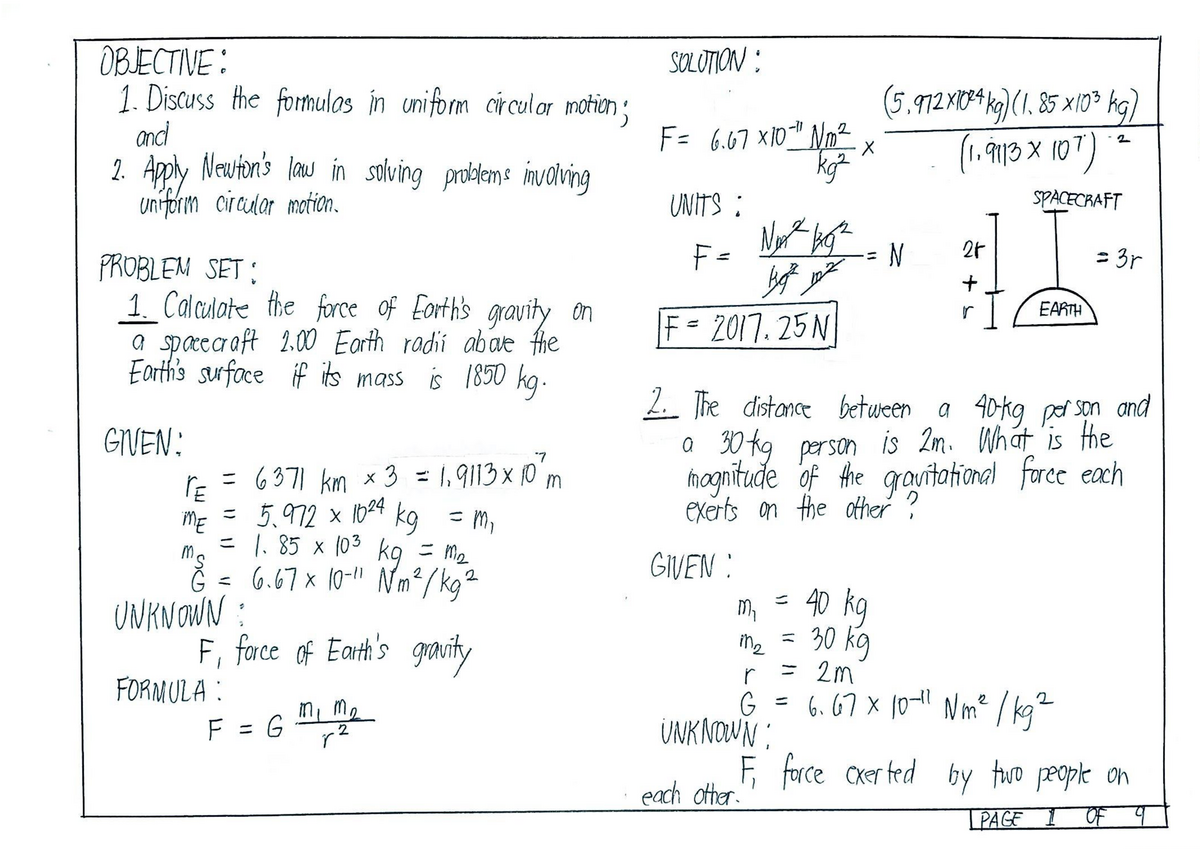 OBJECTIVE:
1. Discuss the formulas in uniform circular motion;
and
2. Apply Newton's law in solving problems involving
uniform circular motion.
PROBLEM SET:
1. Calculate the force of Earth's gravity on
a spacecraft 2.00 Earth radii above the
Earth's surface if its mass is 1850 kg.
GIVEN:
r_E = 6371 km × 3 = 1.9113 × 10^7 m
m_E = 5.972 × 10^24 kg = m₁
m_s = 1.85 × 10^3 kg = m₂
G = 6.67 × 10^-11 Nm²/kg²
UNKNOWN:
F, force of Earth's gravity
FORMULA:
F = G m₁ m₂ / r²
SOLUTION:
F = 6.67 × 10^-11 Nm²/kg² × (5.972×10^24 kg)(1.85 ×10^3 kg) / (1.9113 × 10^7)²
UNITS:
F = Nm² kg² / kg² m² = N
F = 2017.25 N
SPACECRAFT
2r
+
r
EARTH
= 3r
2. The distance between a 40-kg person and
a 30-kg person is 2m. What is the
magnitude of the gravitational force each
exerts on the other?
GIVEN:
m₁ = 40 kg
m₂ = 30 kg
r = 2m
G = 6.67 × 10^-11 Nm²/kg²
UNKNOWN:
F, force exerted by two people on
each other.
PAGE 1 OF 9